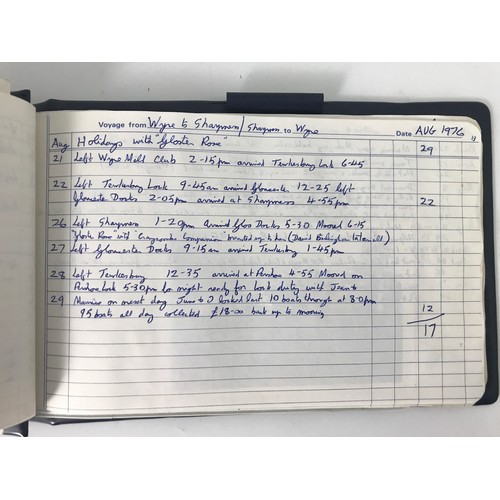 Voyage from Wyre to Sharpness / Sharpness to Wyre Date AUG 1976
Aug Holidays with "Gloster Rose" 29
21 Left Wyre Mill Club 2-15pm arrived Tewkesbury Lock 6-45
22 Left Tewkesbury Lock 9-45am arrived Gloucester 12-25 left
Gloucester Docks 2-05pm arrived at Sharpness 4-55pm 22
26 Left Sharpness 1-20pm Arrived Glos Docks 5-30 Moored 6-15
"Gloster Rose" with Companion moored up to her (David
27 Left Gloucester Docks 9-15am arrived Tewkesbury 1-45pm
28 Left Tewkesbury 12-35 arrived at Pershore 4-55 Moored on
Pershore Lock 5-30pm for night ready for lock duty with Jean &
29 Maurice on next day June & I locked last 10 boats through at 8.0pm 12
95 boats all day collected £18-00 back up to mooring 17